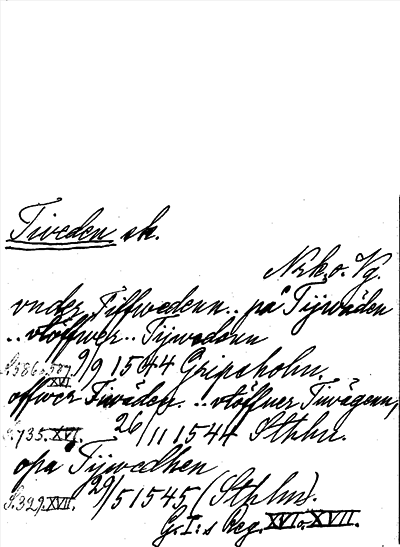 Tiveden sk.
Nrk. o. Vg.
vnder Tiffwedenn.. på Tijwäden
..vtöffwer.. Tijwedenn
S. 586 o. 587 XVI. 9/9 1544 Gripsholm.
offwer Tiwäden. ..vtöffuer Tiwägenn,
S. 735. XVI. 26/11 1544 Sthlm.
opå Tijwedhen
S. 329. XVII. 29/5 1545 (Sthlm).
G. I:s Reg. XVI o. XVII.